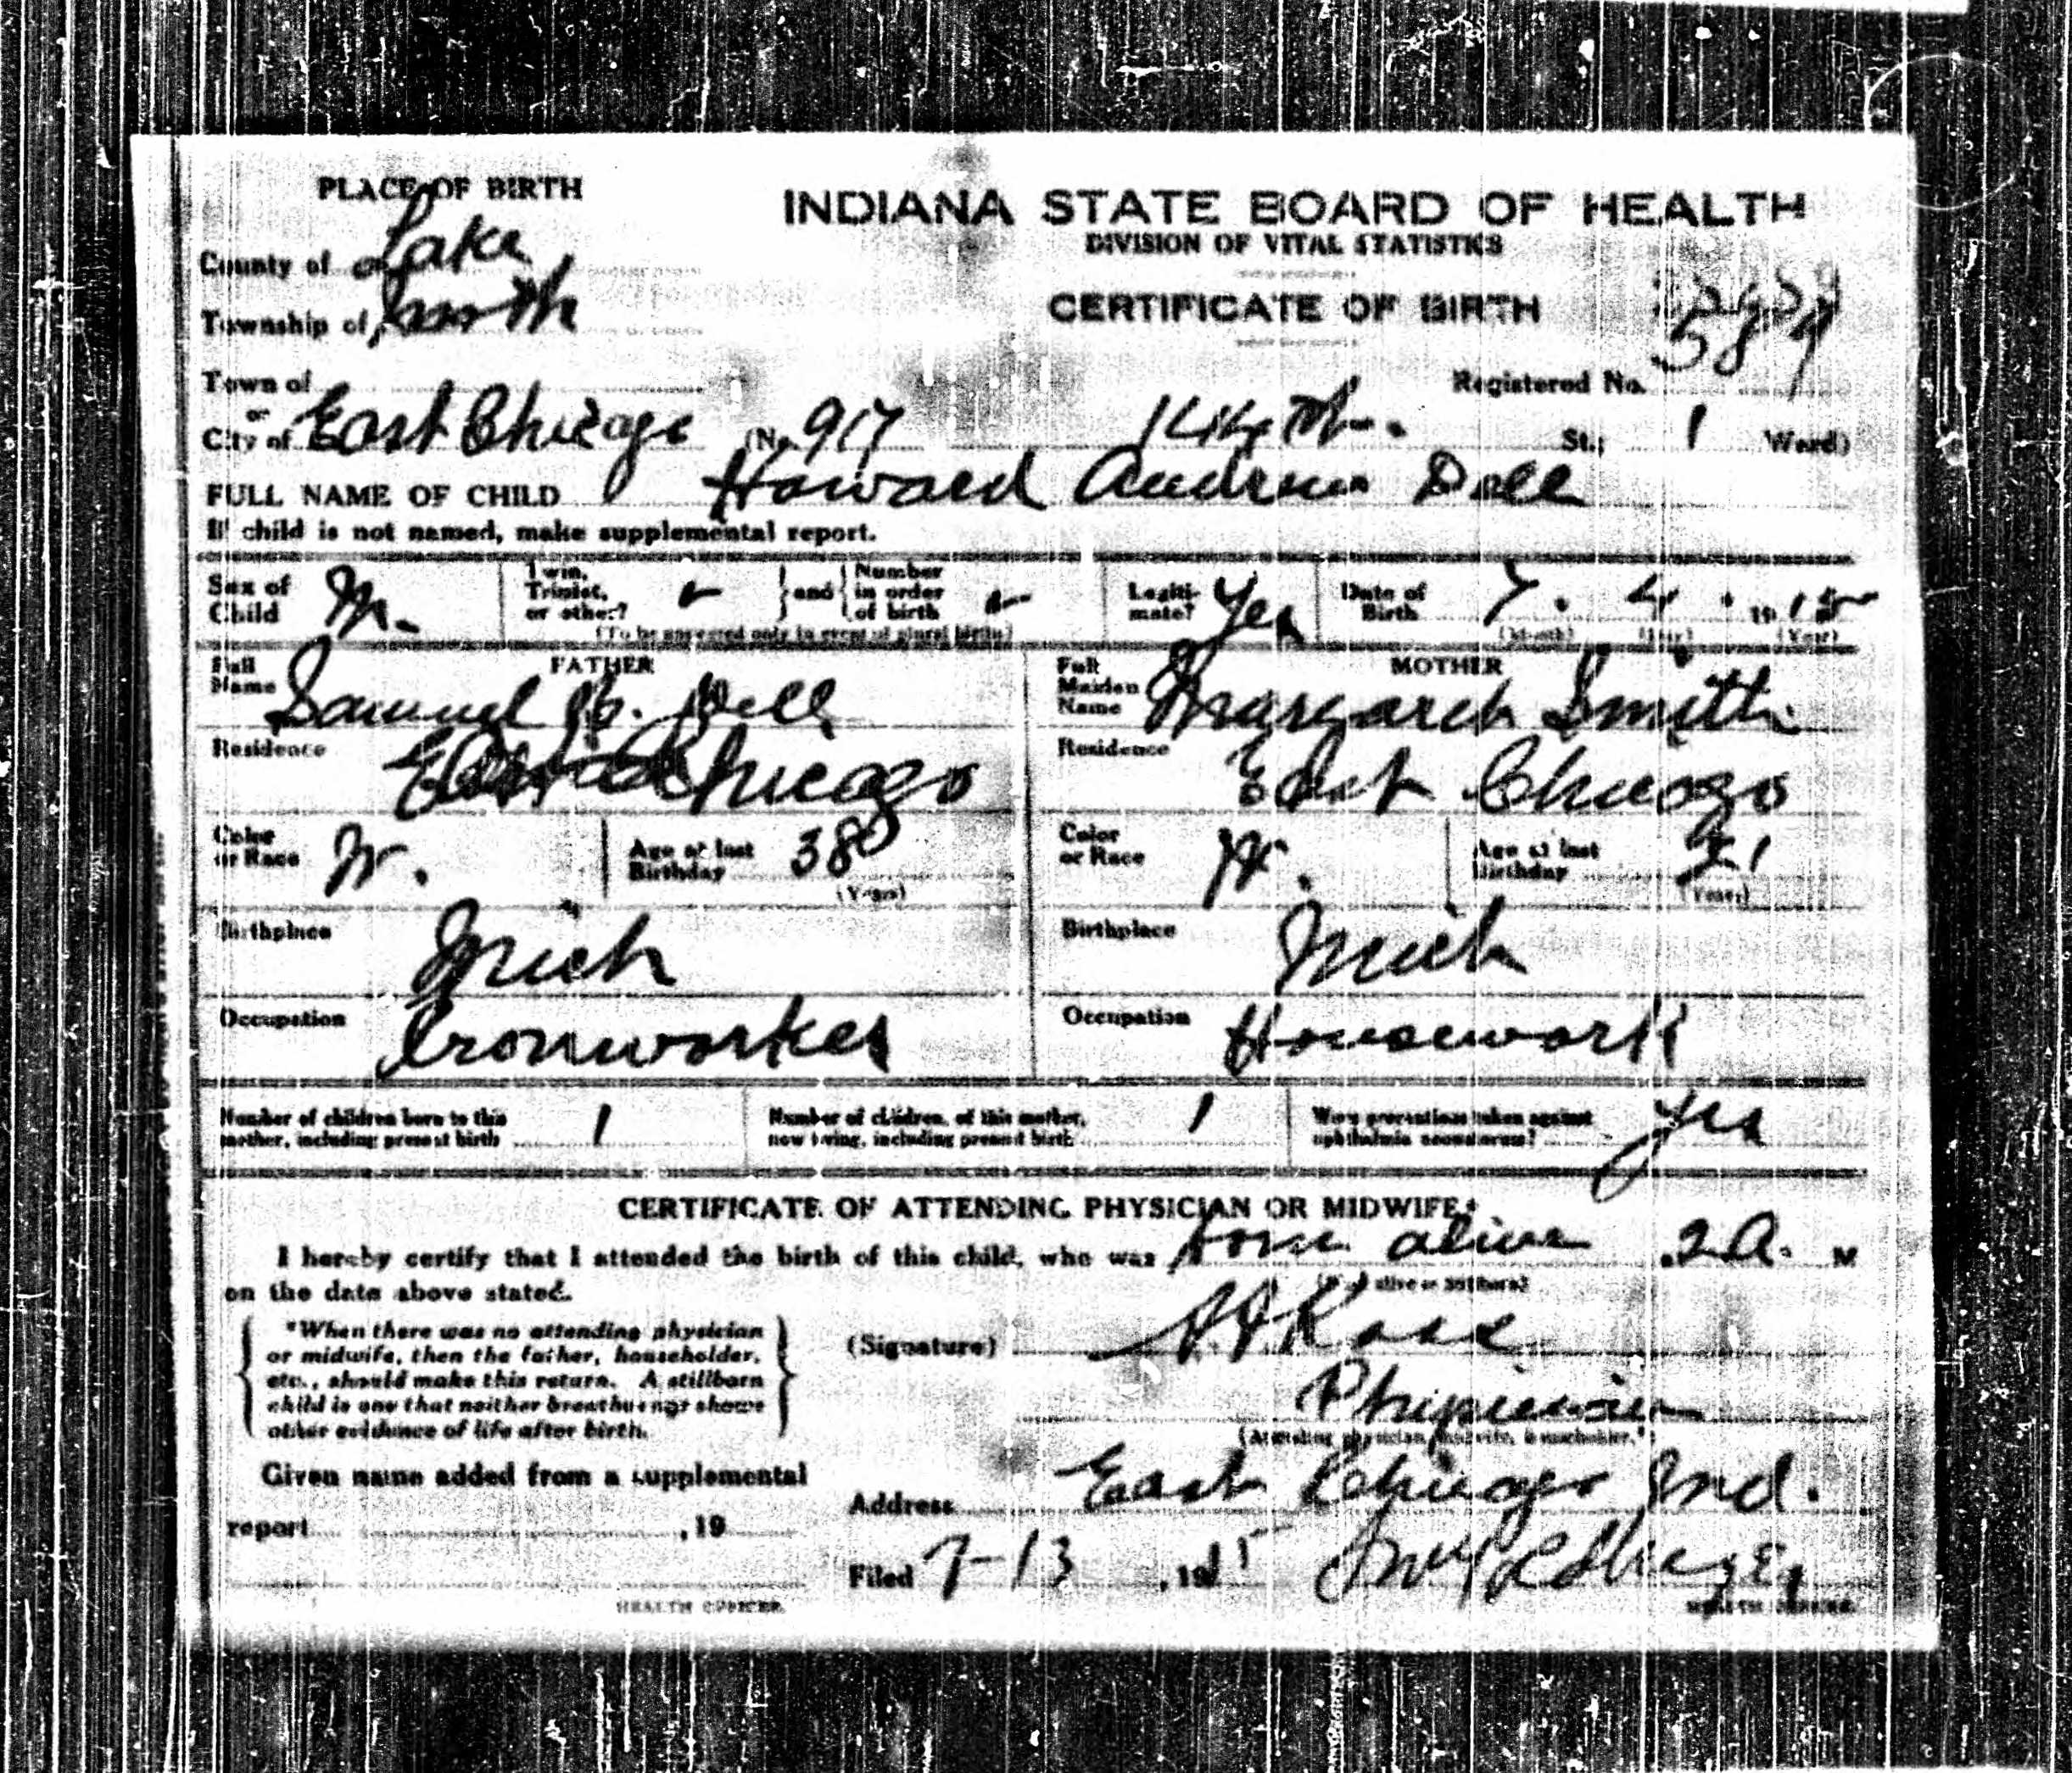 PLACE OF BIRTH
INDIANA STATE BOARD OF HEALTH
DIVISION OF VITAL STATISTICS
County of Lake
CERTIFICATE OF BIRTH
Township of North
589
Town of
Registered No.
or
City of East Chicago (No. 917 144th. St.; 1 Ward)
FULL NAME OF CHILD Howard Andrew Dell
If child is not named, make supplemental report.
Sex of Child M.
Twin, Triplet, or other?
and
Number in order of birth
(To be answered only in event of plural birth)
Legiti-mate? Yes
Date of Birth 7. 4. 1915
(Month) (Day) (Year)
FATHER
Full Name Samuel Dell
MOTHER
Full Maiden Name Margaret Smith
Residence East Chicago
Residence East Chicago
Color or Race W.
Age at last Birthday 38
(Years)
Color or Race W.
Age at last Birthday 21
(Years)
Birthplace Mich
Birthplace Mich
Occupation Ironworker
Occupation Housework
Number of children born to this mother, including present birth 1
Number of children, of this mother, now living, including present birth 1
Were precautions taken against ophthalmia neonatorum? Yes
CERTIFICATE OF ATTENDING PHYSICIAN OR MIDWIFE*
I hereby certify that I attended the birth of this child, who was born alive 2 A. M
on the date above stated.
(Born alive or stillborn)
*When there was no attending physician
or midwife, then the father, householder,
etc., should make this return. A stillborn
child is one that neither breathes nor shows
other evidence of life after birth.
(Signature)
Physician
(Attending physician, midwife, householder.*)
Given name added from a supplemental
report , 19
Address East Chicago Ind.
Filed 7-13, 1915
HEALTH OFFICER.
HEALTH OFFICER.